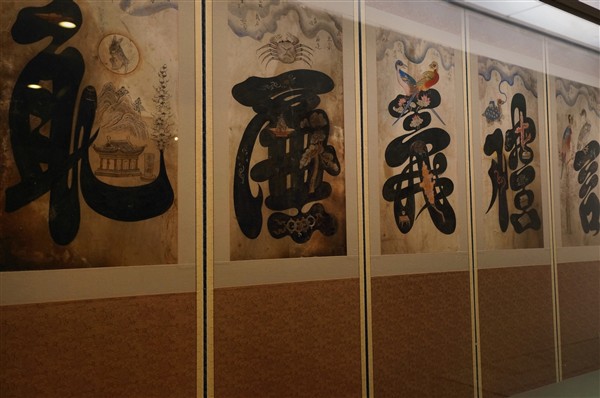 信
禮
義
廉
恥